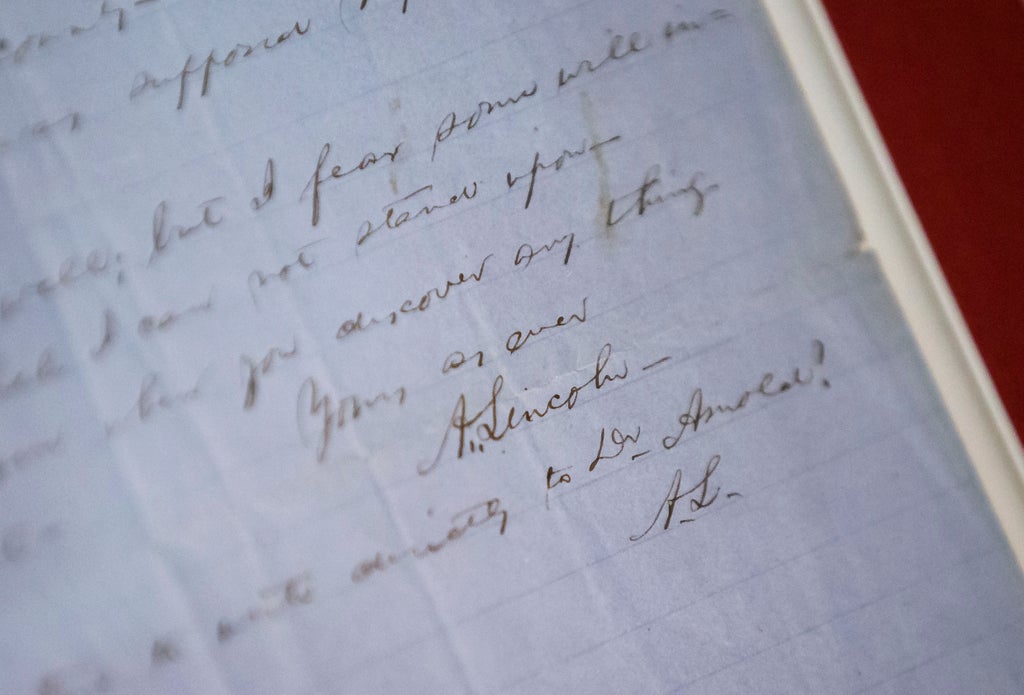 county—
as supposed
well; but I fear some will in=
I can not stand upon—
when you discover any thing.
Yours as ever
A. Lincoln—
write directly to Dr. Arnold?
A.L.